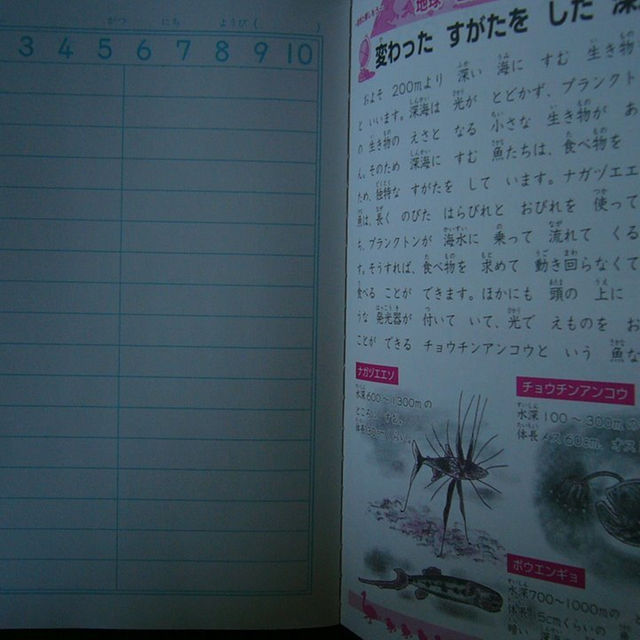 がつ にち ようび（ ）
3 4 5 6 7 8 9 10
地球
変わった すがたを した 深
およそ 200mより 深い 海に すむ 生き物
と いいます。深海は 光が とどかず、プランクト
の 生き物の えさと なる 小さな 生き物が あ
ん。そのため 深海に すむ 魚たちは、食べ物を
ため、独特な すがたを して います。ナガヅエエ
魚は、長く のびた はらびれと おびれを 使って
ち、プランクトンが 海水に 乗って 流れて くる
す。そうすれば、食べ物を 求めて 動き回らなくて
食べる ことが できます。ほかにも 頭の 上に
うな 発光器が 付いて いて、光で えものを お
ことが できる チョウチンアンコウと いう 魚な
ナガヅエエソ
水深600〜1300mの
ところ
体長
チョウチンアンコウ
水深100〜300m
体長 60cm
ボウエンギョ
水深700〜1000mの
体長15cmくらいの